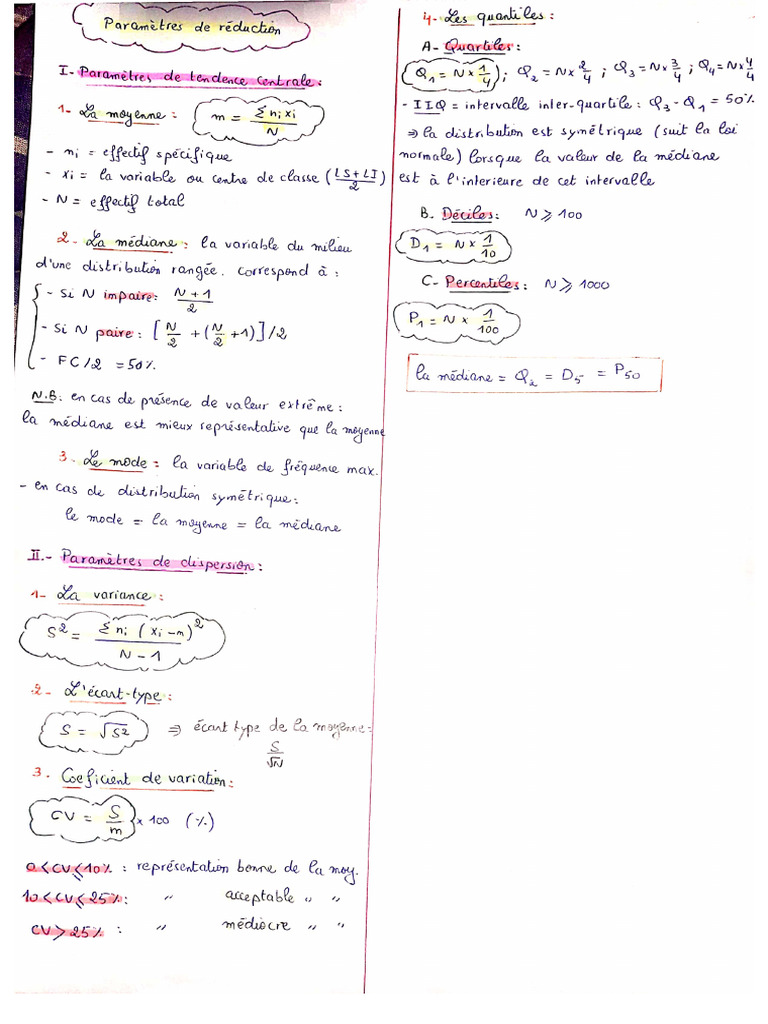 Paramètres de réduction
I- Paramètres de tendence centrale:
1- La moyenne : m = Σ ni xi / N
- ni = effectif spécifique
- xi = la variable ou centre de classe (LS+LI / 2)
- N = effectif total
2- La médiane : la variable du milieu
d'une distribution rangée. correspond à :
- Si N impaire: N+1 / 2
- Si N paire : [N/2 + (N/2 +1)]/2
- FC/2 = 50%
N.B: en cas de présence de valeur extrême :
la médiane est mieux représentative que la moyenne
3. Le mode : la variable de fréquence max.
- en cas de distribution symétrique :
le mode = la moyenne = la médiane
II.- Paramètres de dispersion :
1- La variance :
S² = Σ ni (xi - m)² / N - 1
2- L'écart-type :
S = √S² ⇒ écart type de la moyenne :
S/√N
3. Coeficient de variation :
CV = S/m × 100 (%)
0<CV⩽10% : représentation bonne de la moy.
10<CV⩽25% : " acceptable " "
CV>25% : " médiocre " "
4- Les quantiles :
A- Quartiles :
Q1 = N×1/4 ; Q2 = N×2/4 ; Q3 = N×3/4 ; Q4 = N×4/4
- IIQ = intervalle inter-quartile : Q3 - Q1 = 50%
⇒ la distribution est symétrique (suit la loi
normale) lorsque la valeur de la médiane
est à l'interieure de cet intervalle
B. Déciles: N ⩾ 100
D1 = N × 1/10
C- Percentiles : N ⩾ 1000
P1 = N × 1/100
la médiane = Q2 = D5 = P50